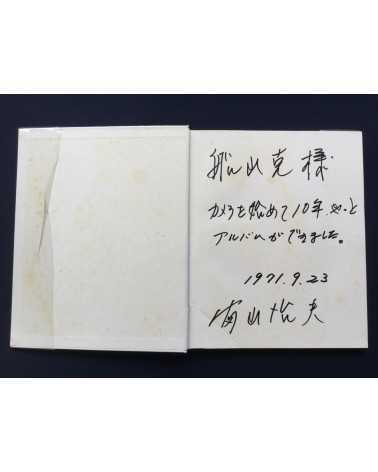 船山克様
カメラを始めて10年、やっと
アルバムができました。
1971.9.23
山
夫